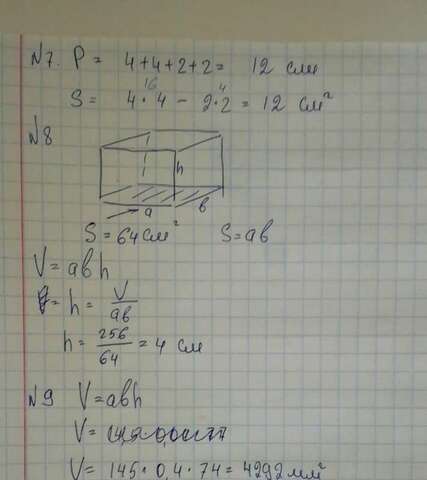 №7. P = 4+4+2+2 = 12 см
16 4
S = 4·4 - 2·2 = 12 см²
№8
h
a b
S = 64 см² S = ab
V = abh
h = V/ab
h = 256/64 = 4 см
№9 V = abh
V =
V = 145·0,4·74 = 4292 мм²